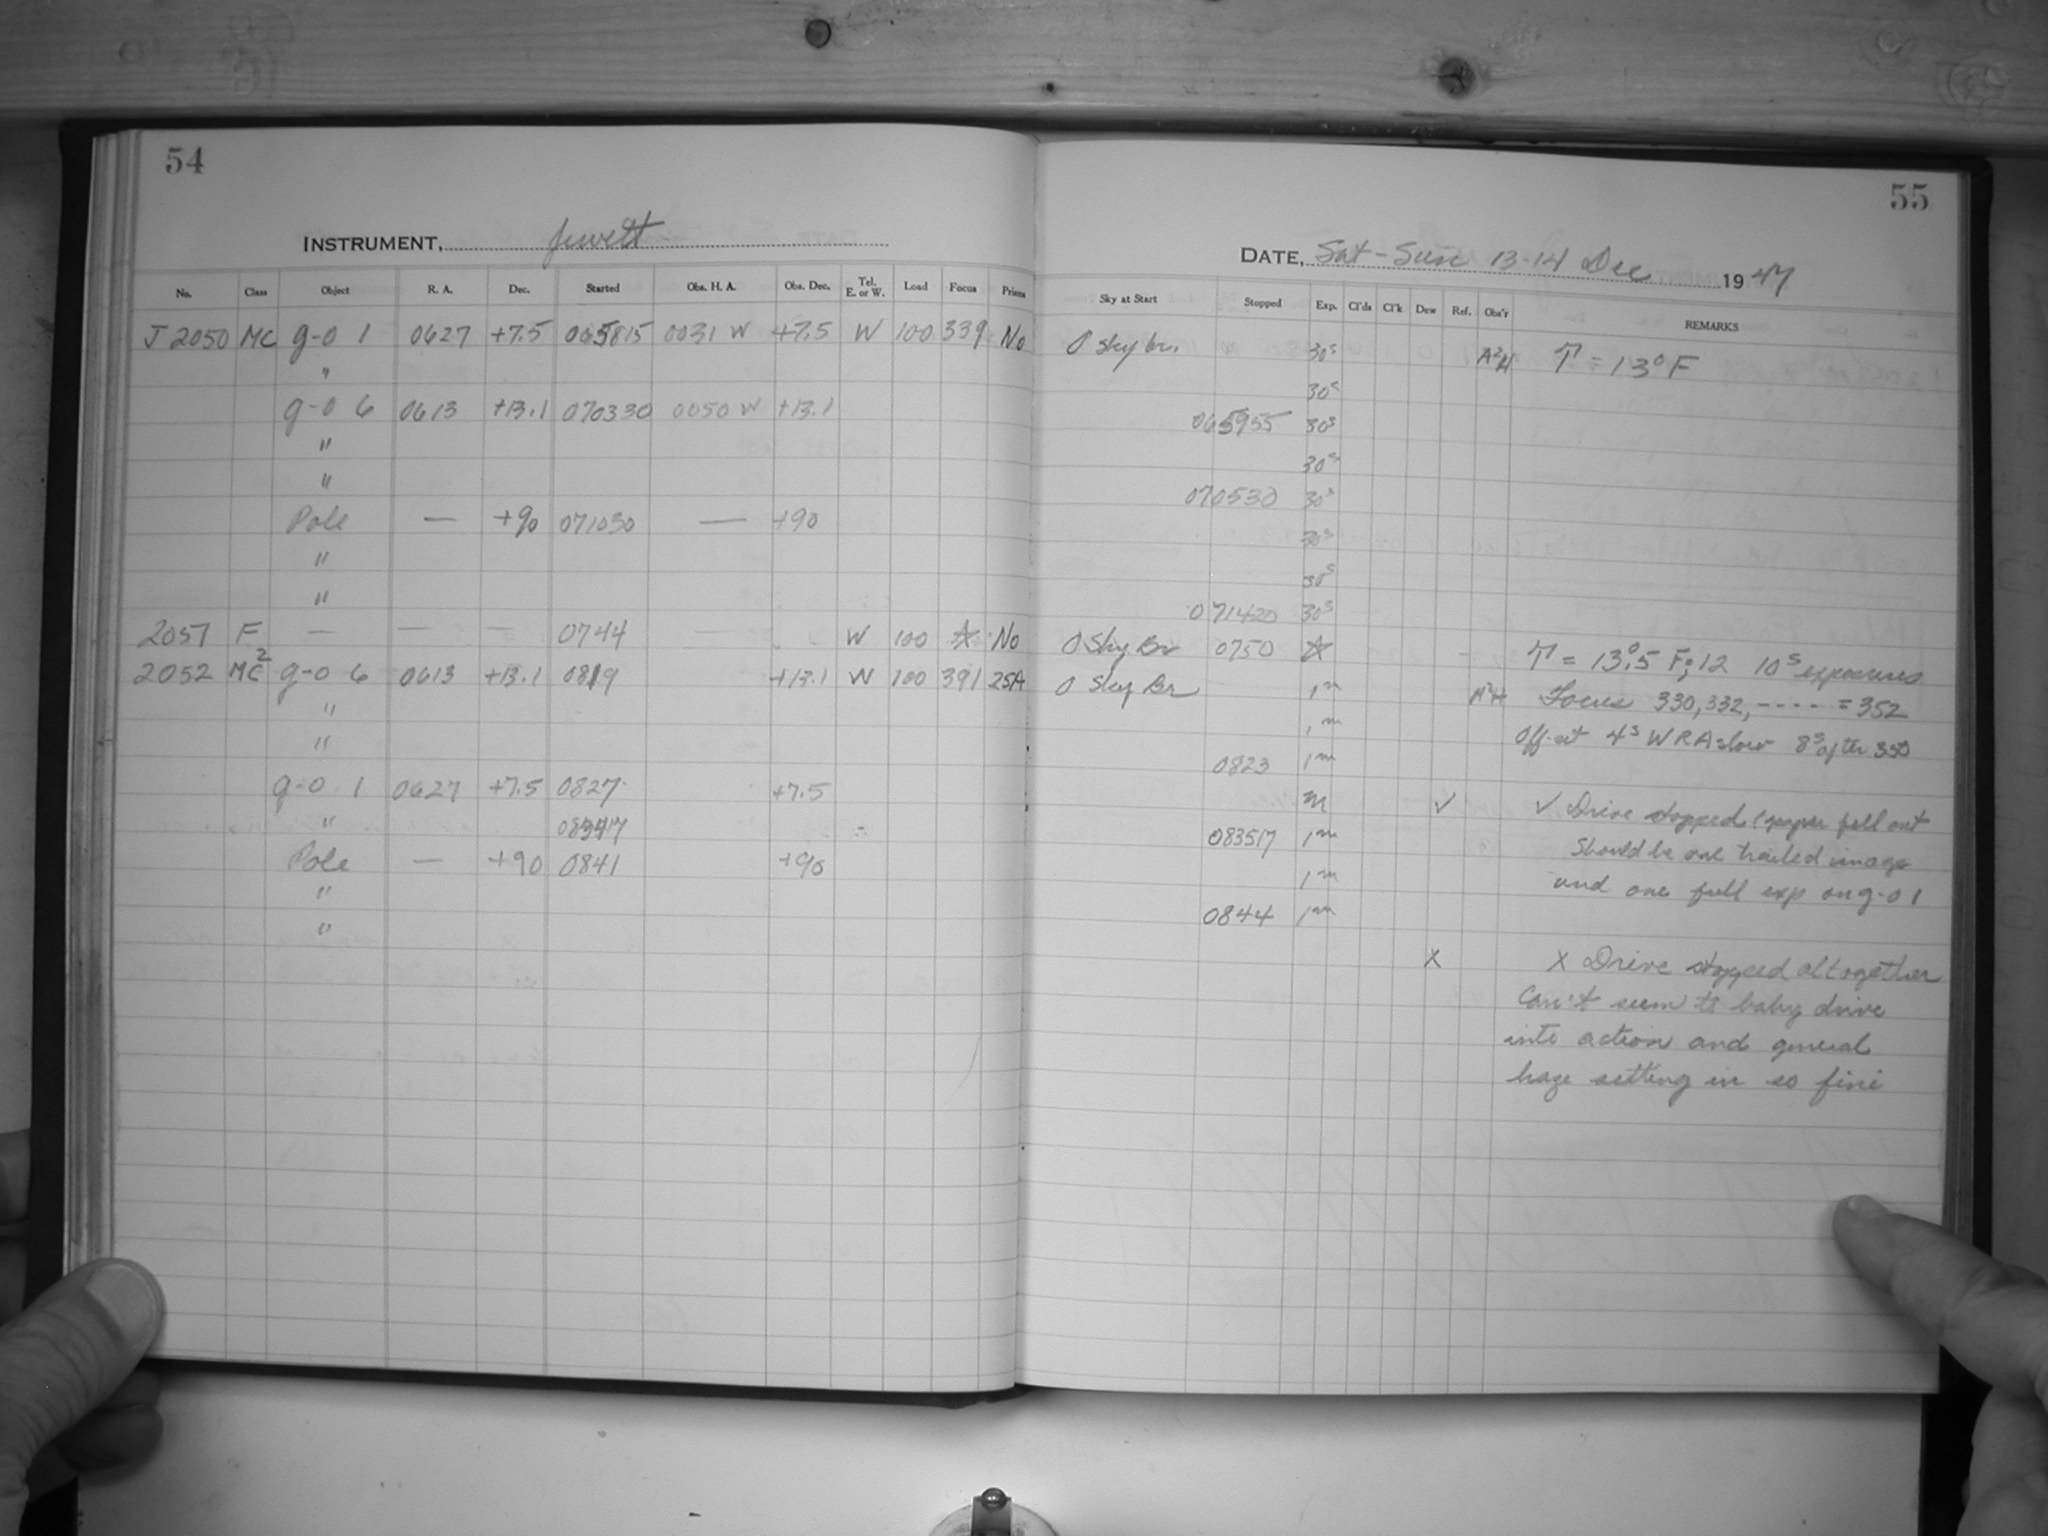 54
INSTRUMENT, Jewett
No. Class Object R. A. Dec. Started Obs. H. A. Obs. Dec. Tel. E. or W. Load Focus Prisms
J 2050 MC g-0 1 0627 +7.5 065815 0031 W +7.5 W 100 339 No
"
g-0 6 0613 +13.1 070330 0050 W +13.1
"
"
Pole — +90 071030 — +90
"
"
2051 F — — — 0744 — W 100 ☆ No
2052 MC2 g-0 6 0613 +13.1 0819 +13.1 W 100 391 25A
"
"
g-0 1 0627 +7.5 0827 +7.5
"
Pole — +90 0841 +90
"
"
55
DATE, Sat-Sun 13-14 Dec 1947
Sky at Start Stopped Exp. Cl'ds Cl'k Dew Ref. Obs'r REMARKS
0 sky br. 30s A2H T = 13° F
30s
065955 30s
30s
070530 30s
30s
30s
071420 30s
0 Sky Br 0750 ☆ T = 13°.5 F; 12 10s exposures
0 Sky Br 1m A2H Focus 330, 332, ---- = 352
1m Off-set 4s W RA slow 8s after 350
0823 1m
m ✓ ✓ Drive stopped (paper fell out
083517 1m Should be one trailed image
1m and one full exp on g-0 1
0844 1m
X X Drive stopped altogether
Can't seem to baby drive
into action and general
haze setting in so fini